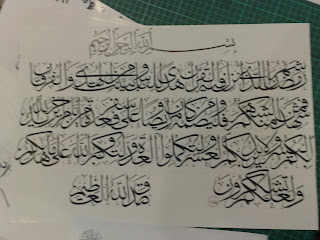 بسم الله الرحمن الرحيم
شهر رمضان الذي أنزل فيه القرآن هدى للناس وبينات من الهدى والفرقان
فمن شهد منكم الشهر فليصمه ومن كان مريضا أو على سفر فعدة من أيام أخر يريد الله
بكم اليسر ولا يريد بكم العسر ولتكملوا العدة ولتكبروا الله على ما هداكم
ولعلكم تشكرون صدق الله العظيم